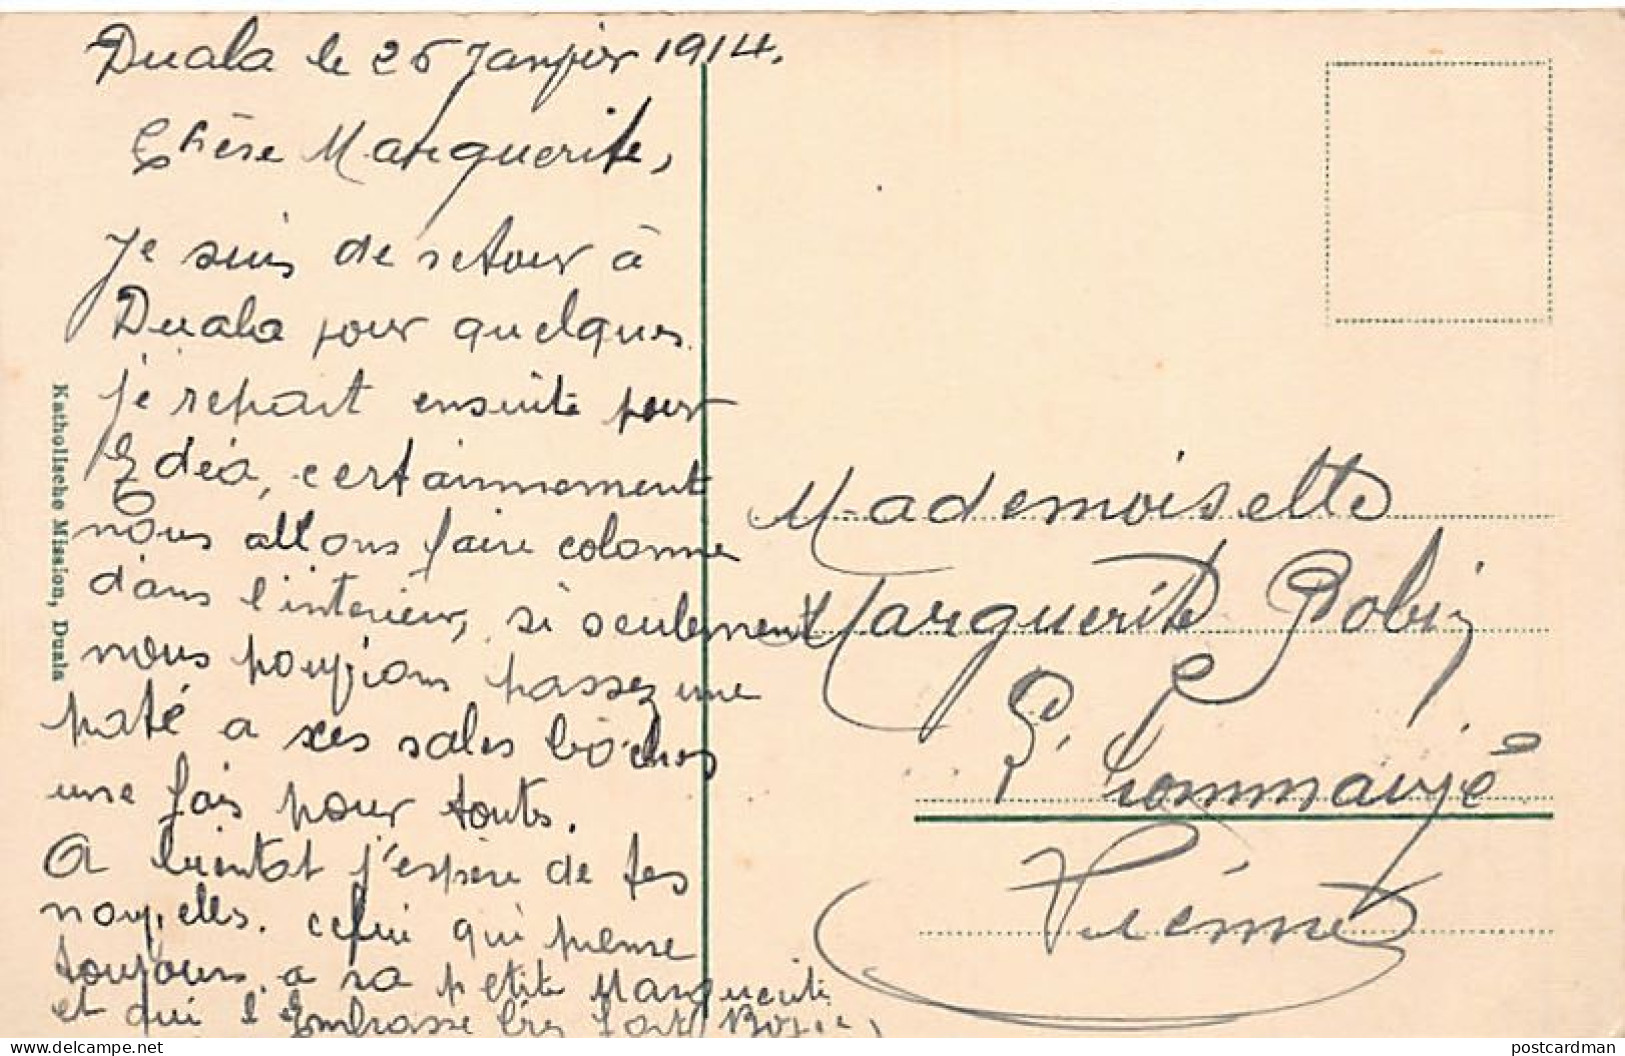 Duala le 26 Janvier 1914.
Chère Marguerite,
Je suis de retour à
Duala pour quelques
je repart ensuite pour
Edéa, certainnement
nous allons faire colonne
dans l'interieur, si seulement
nous pouvions passez une
paté a ses sales bôches
une fois pour toute.
A bientot j'espère de tes
nouvelles. celui qui pense
toujours a sa petite Marguerite
et qui l'Embrasse très fort
Katholische Mission, Duala
Mademoiselle
Marguerite Robin
P. Commavié
Viénne
postcardman